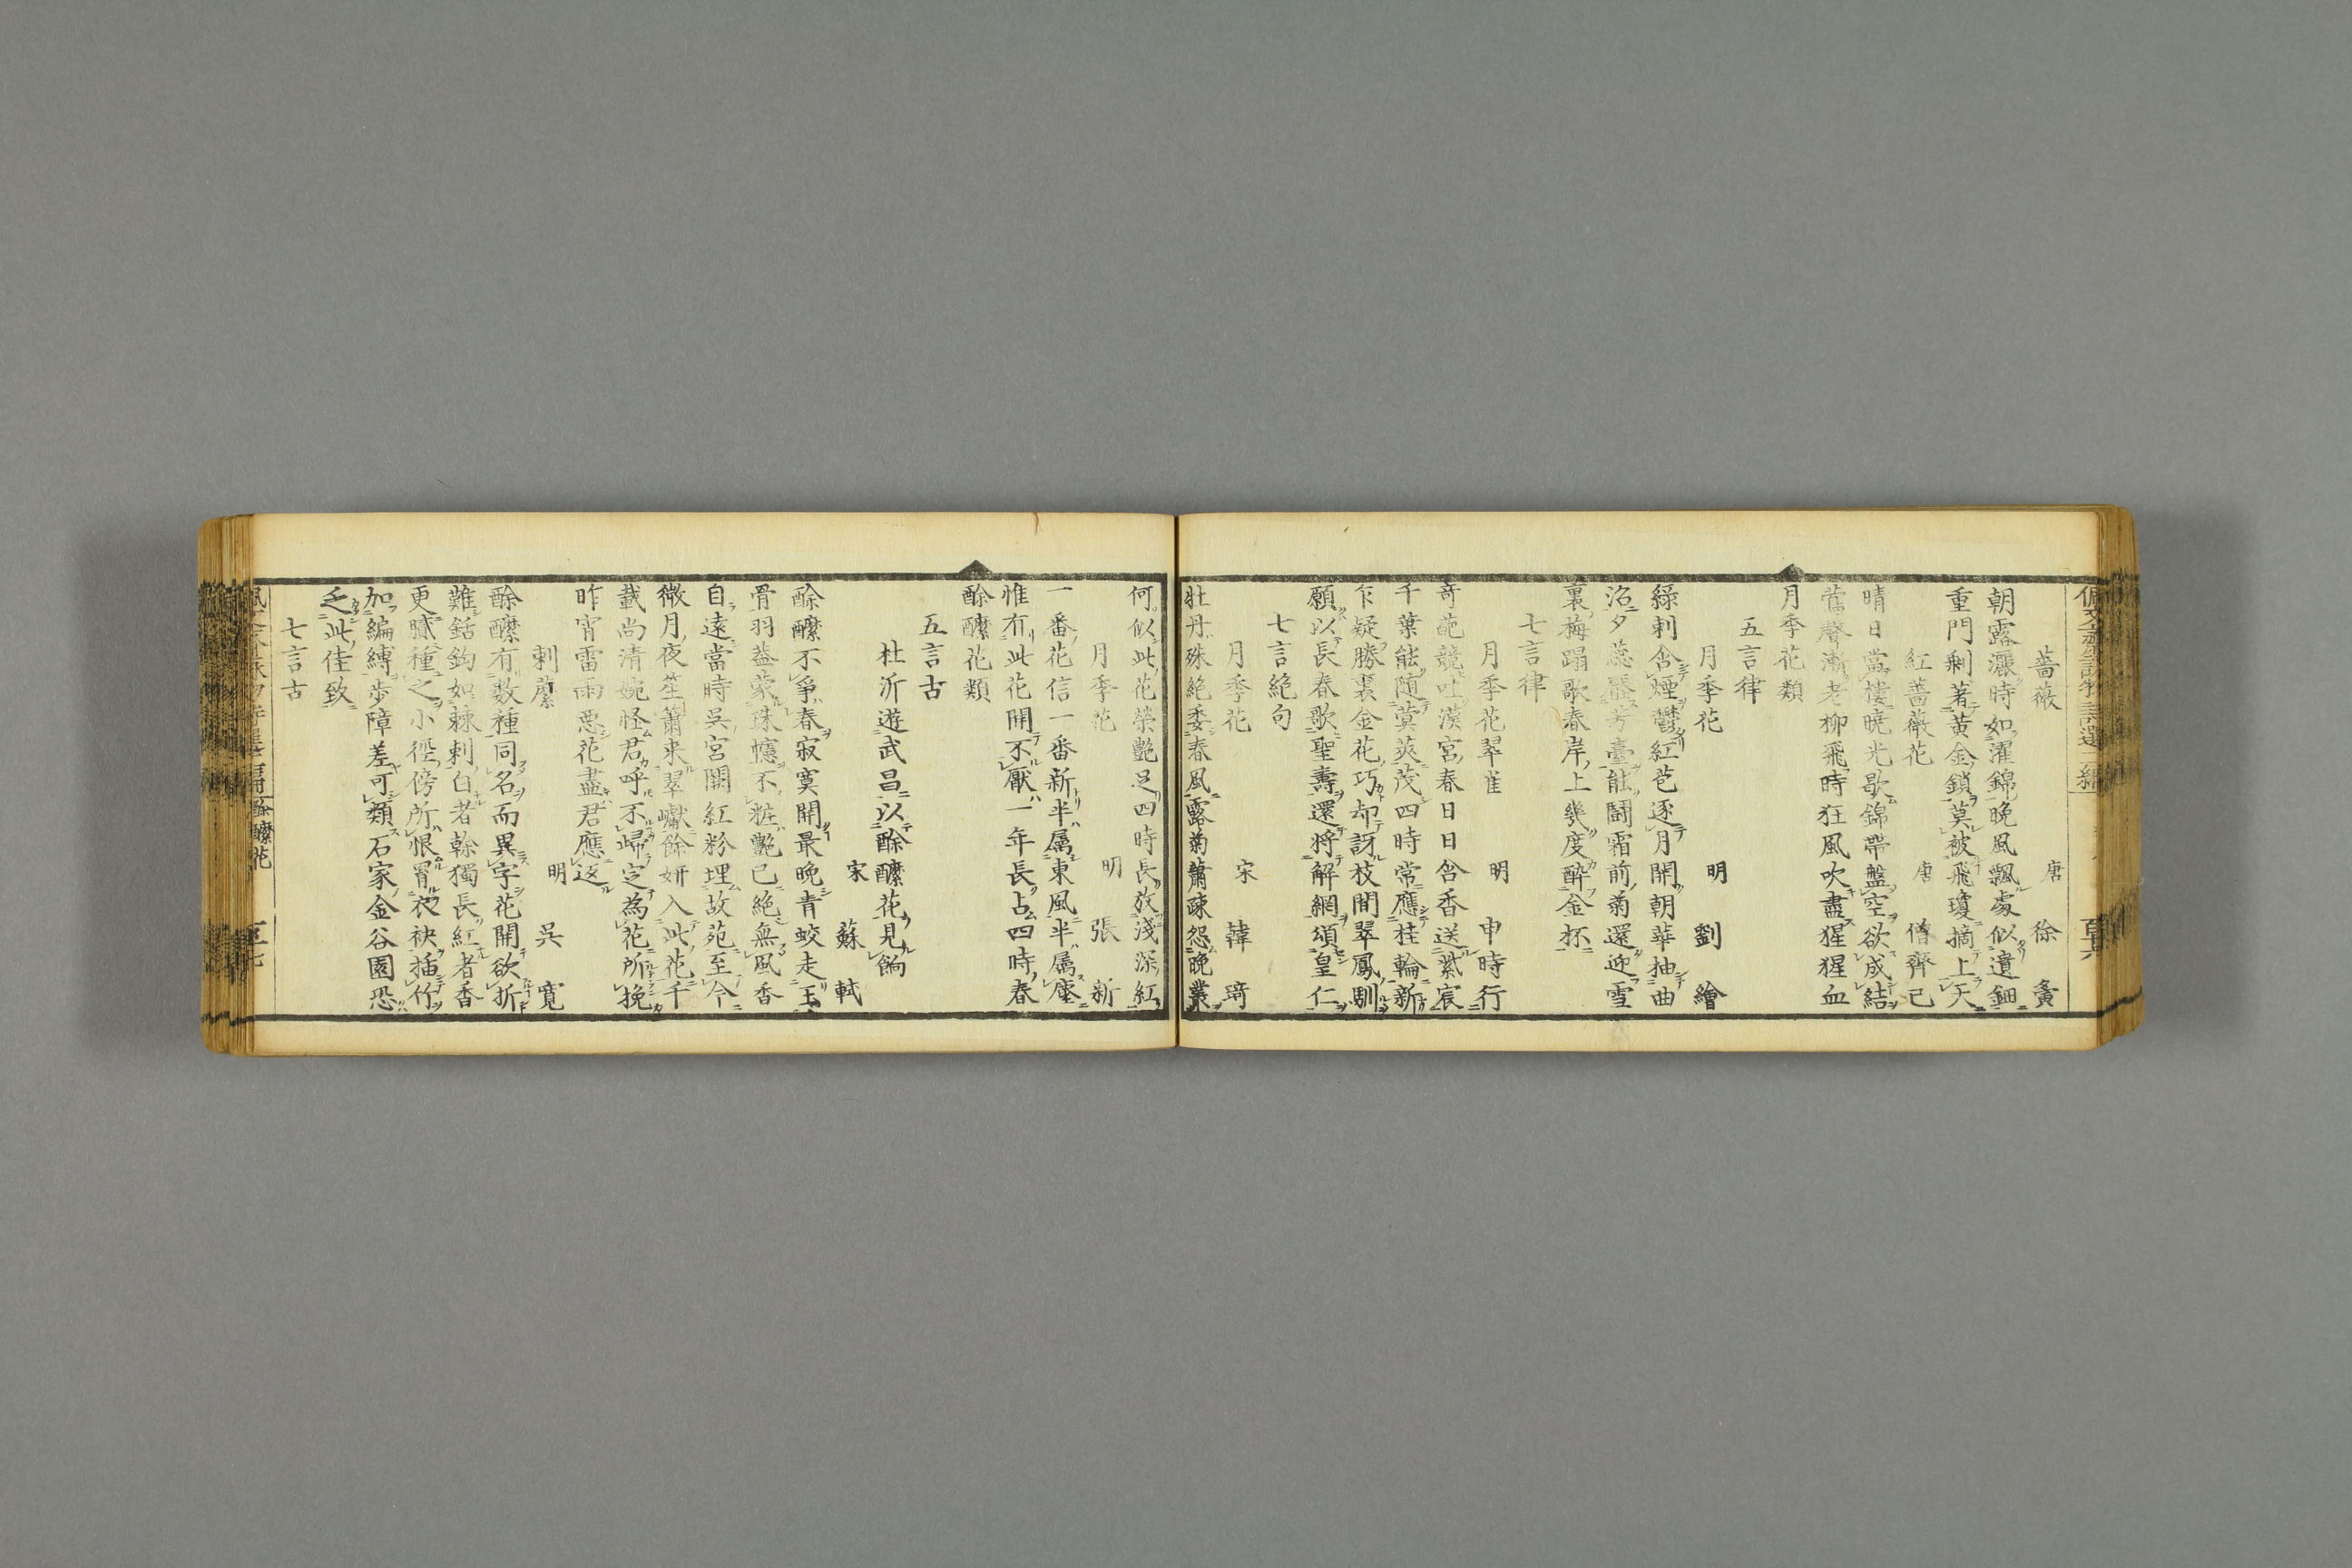 薔薇　唐　徐夤
朝露灑時如濯錦晩風飄處似遺鈿
重門剩著黃金鎖莫被飛瓊摘上天
紅薔薇花　唐　僧齊己
晴日當樓曉光歇錦帶盤空欲成結
鶯聲漸老柳飛時狂風吹盡猩猩血
月季花類
五言律
月季花　明　劉繪
綠刺含煙鬱紅苞逐月開朝華抽曲
沼夕蕊壓芳臺能鬪霜前菊還迎雪
裏梅蹋歌春岸上幾度醉金杯
七言律
月季花翠雀　明　申時行
奇葩競吐漢宮春日日含香送紫宸
千葉能隨蓂莢茂四時常應桂輪新
乍疑勝裏金花巧却訝枝間翠鳳馴
願以長春歌聖壽還將解網頌皇仁
七言絶句
月季花　宋　韓琦
牡丹殊絶委春風露菊蕭疎怨晩叢
何似此花榮艶足四時長放淺深紅
月季花　明　張新
一番花信一番新半屬東風半屬塵
惟有此花開不厭一年長占四時春
酴醾花類
五言古
杜沂遊武昌以酴醾花見餉
宋　蘇軾
酴醾不爭春寂寞開最晩青蛟走玉
骨羽蓋蒙珠幰不粧艶已絶無風香
自遠當時吳宮闕紅粉埋故苑至今
微月夜笙簫来翠巘餘妍入此花千
載尚清婉怪君呼不歸定為花所挽
昨宵雷雨惡花盡君應返
刺蘪　明　吳寬
酴醾有数種同名而異字花開欲折
難銛鉤如棘刺白者幹獨長紅者香
更膩種之小徑傍所恨罥衣袂插竹
加編縛步障差可類石家金谷園恐
乏此佳致
七言古
酴醾花